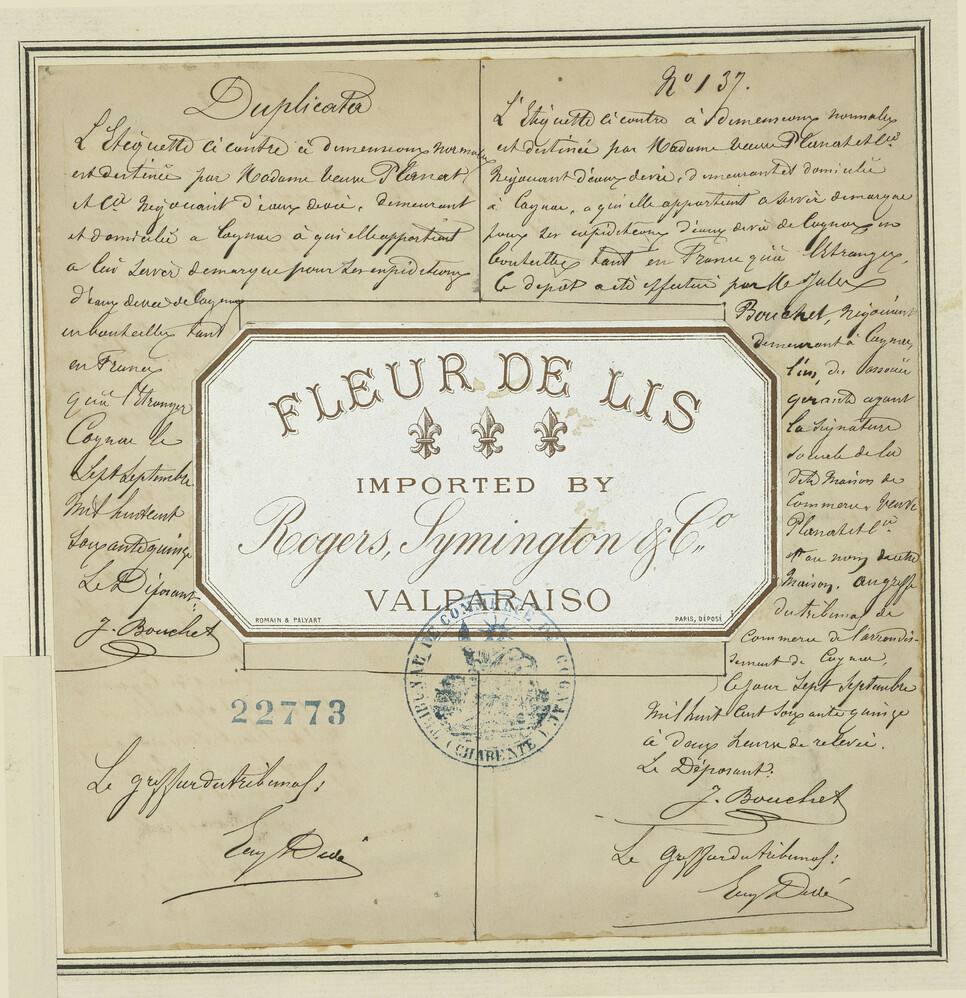 Duplicata
L'Etiquette ci contre à dimensions normales
est destinée par Madame veuve Planat
et Cie Négociant d'eaux de vie, demeurant
et domicilié a Cognac à qui elle appartient
a lui servir de marque pour ses expéditions
d'eaux de vie de Cognac
en bouteilles tant
en France
qu'à l'Etranger
Cognac le
Sept Septembre
Mil huit cent
soixante quinze
Le Déposant:
J. Bouchet
No 137.
L'Etiquette ci contre à dimensions normales
est destinée par Madame veuve Planat et Cie
Négociant d'eaux de vie, demeurant et domicilié
à Cognac, a qui elle appartient a servir de marque
pour ses expéditions d'eaux de vie de Cognac en
bouteilles tant en France qu'à l'Etranger.
Le depôt a été effectué par M. Jules
Bouchet, Négociant
demeurant à Cognac,
l'un des associés
gérants ayant
la signature
sociale de la
dite Maison de
Commerce Veuve
Planat et Cie
et au nom de cette
Maison, au greffe
du tribunal de
Commerce de l'arrondis-
sement de Cognac,
Ce jour Sept Septembre
Mil huit Cent soixante quinze
à deux heures de relevée.
Le Déposant:
J. Bouchet
Le Greffier du tribunal:
Eug Dedé
FLEUR DE LIS
IMPORTED BY
Rogers, Symington & Co
VALPARAISO
ROMAIN & PALYART
PARIS, DÉPOSÉ
TRIBUNAL DE COMMERCE DE COGNAC
(CHARENTE)
22773
Le greffier du tribunal:
Eug Dedé